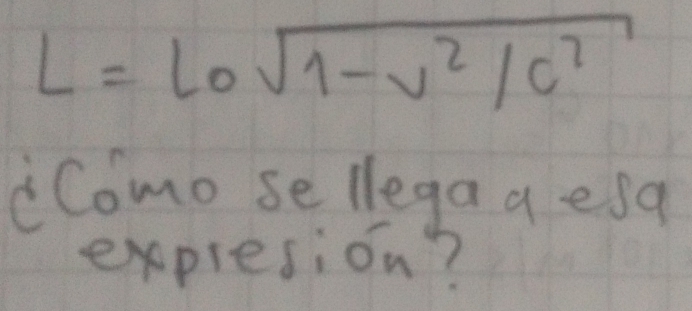 L = Lo √1 - v² / c²
¿Cómo se llega a esa
expresión?